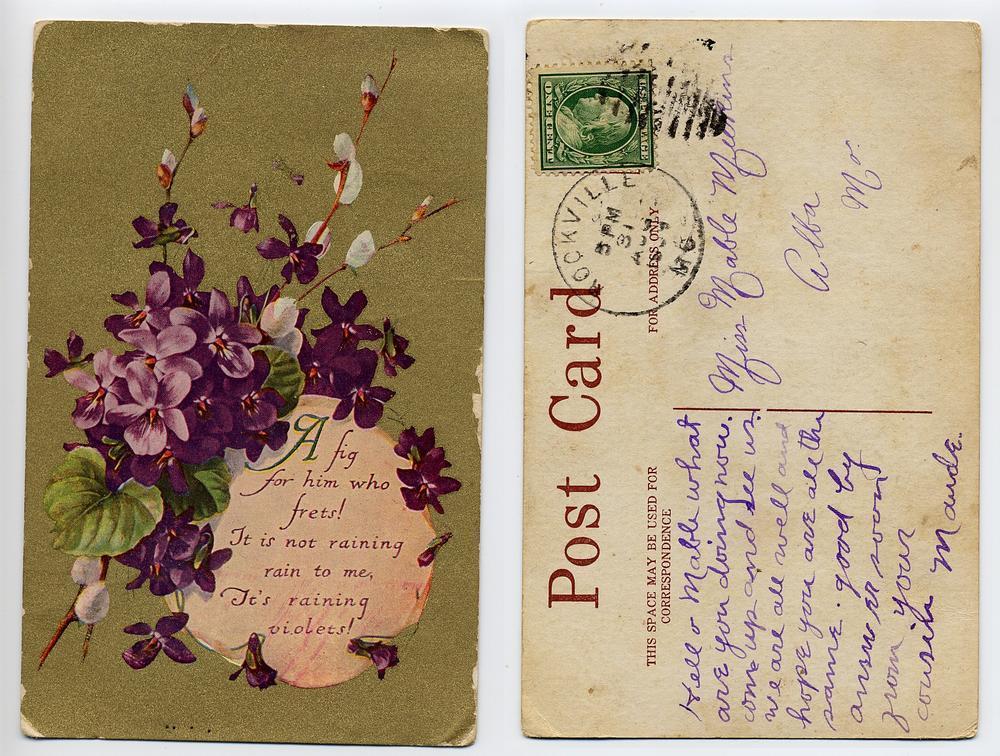 A fig
for him who
frets!
It is not raining
rain to me,
It's raining
violets!
Post Card
THIS SPACE MAY BE USED FOR
CORRESPONDENCE
FOR ADDRESS ONLY
ONE CENT
ROCKVILLE
5 PM
31
MO
Hello Mable what
are you doing now.
come up and see us.
we are all well and
hope you are all the
same. good by
answer soon
from your
cousin Maude.
Miss Mable
Alba
Mo.